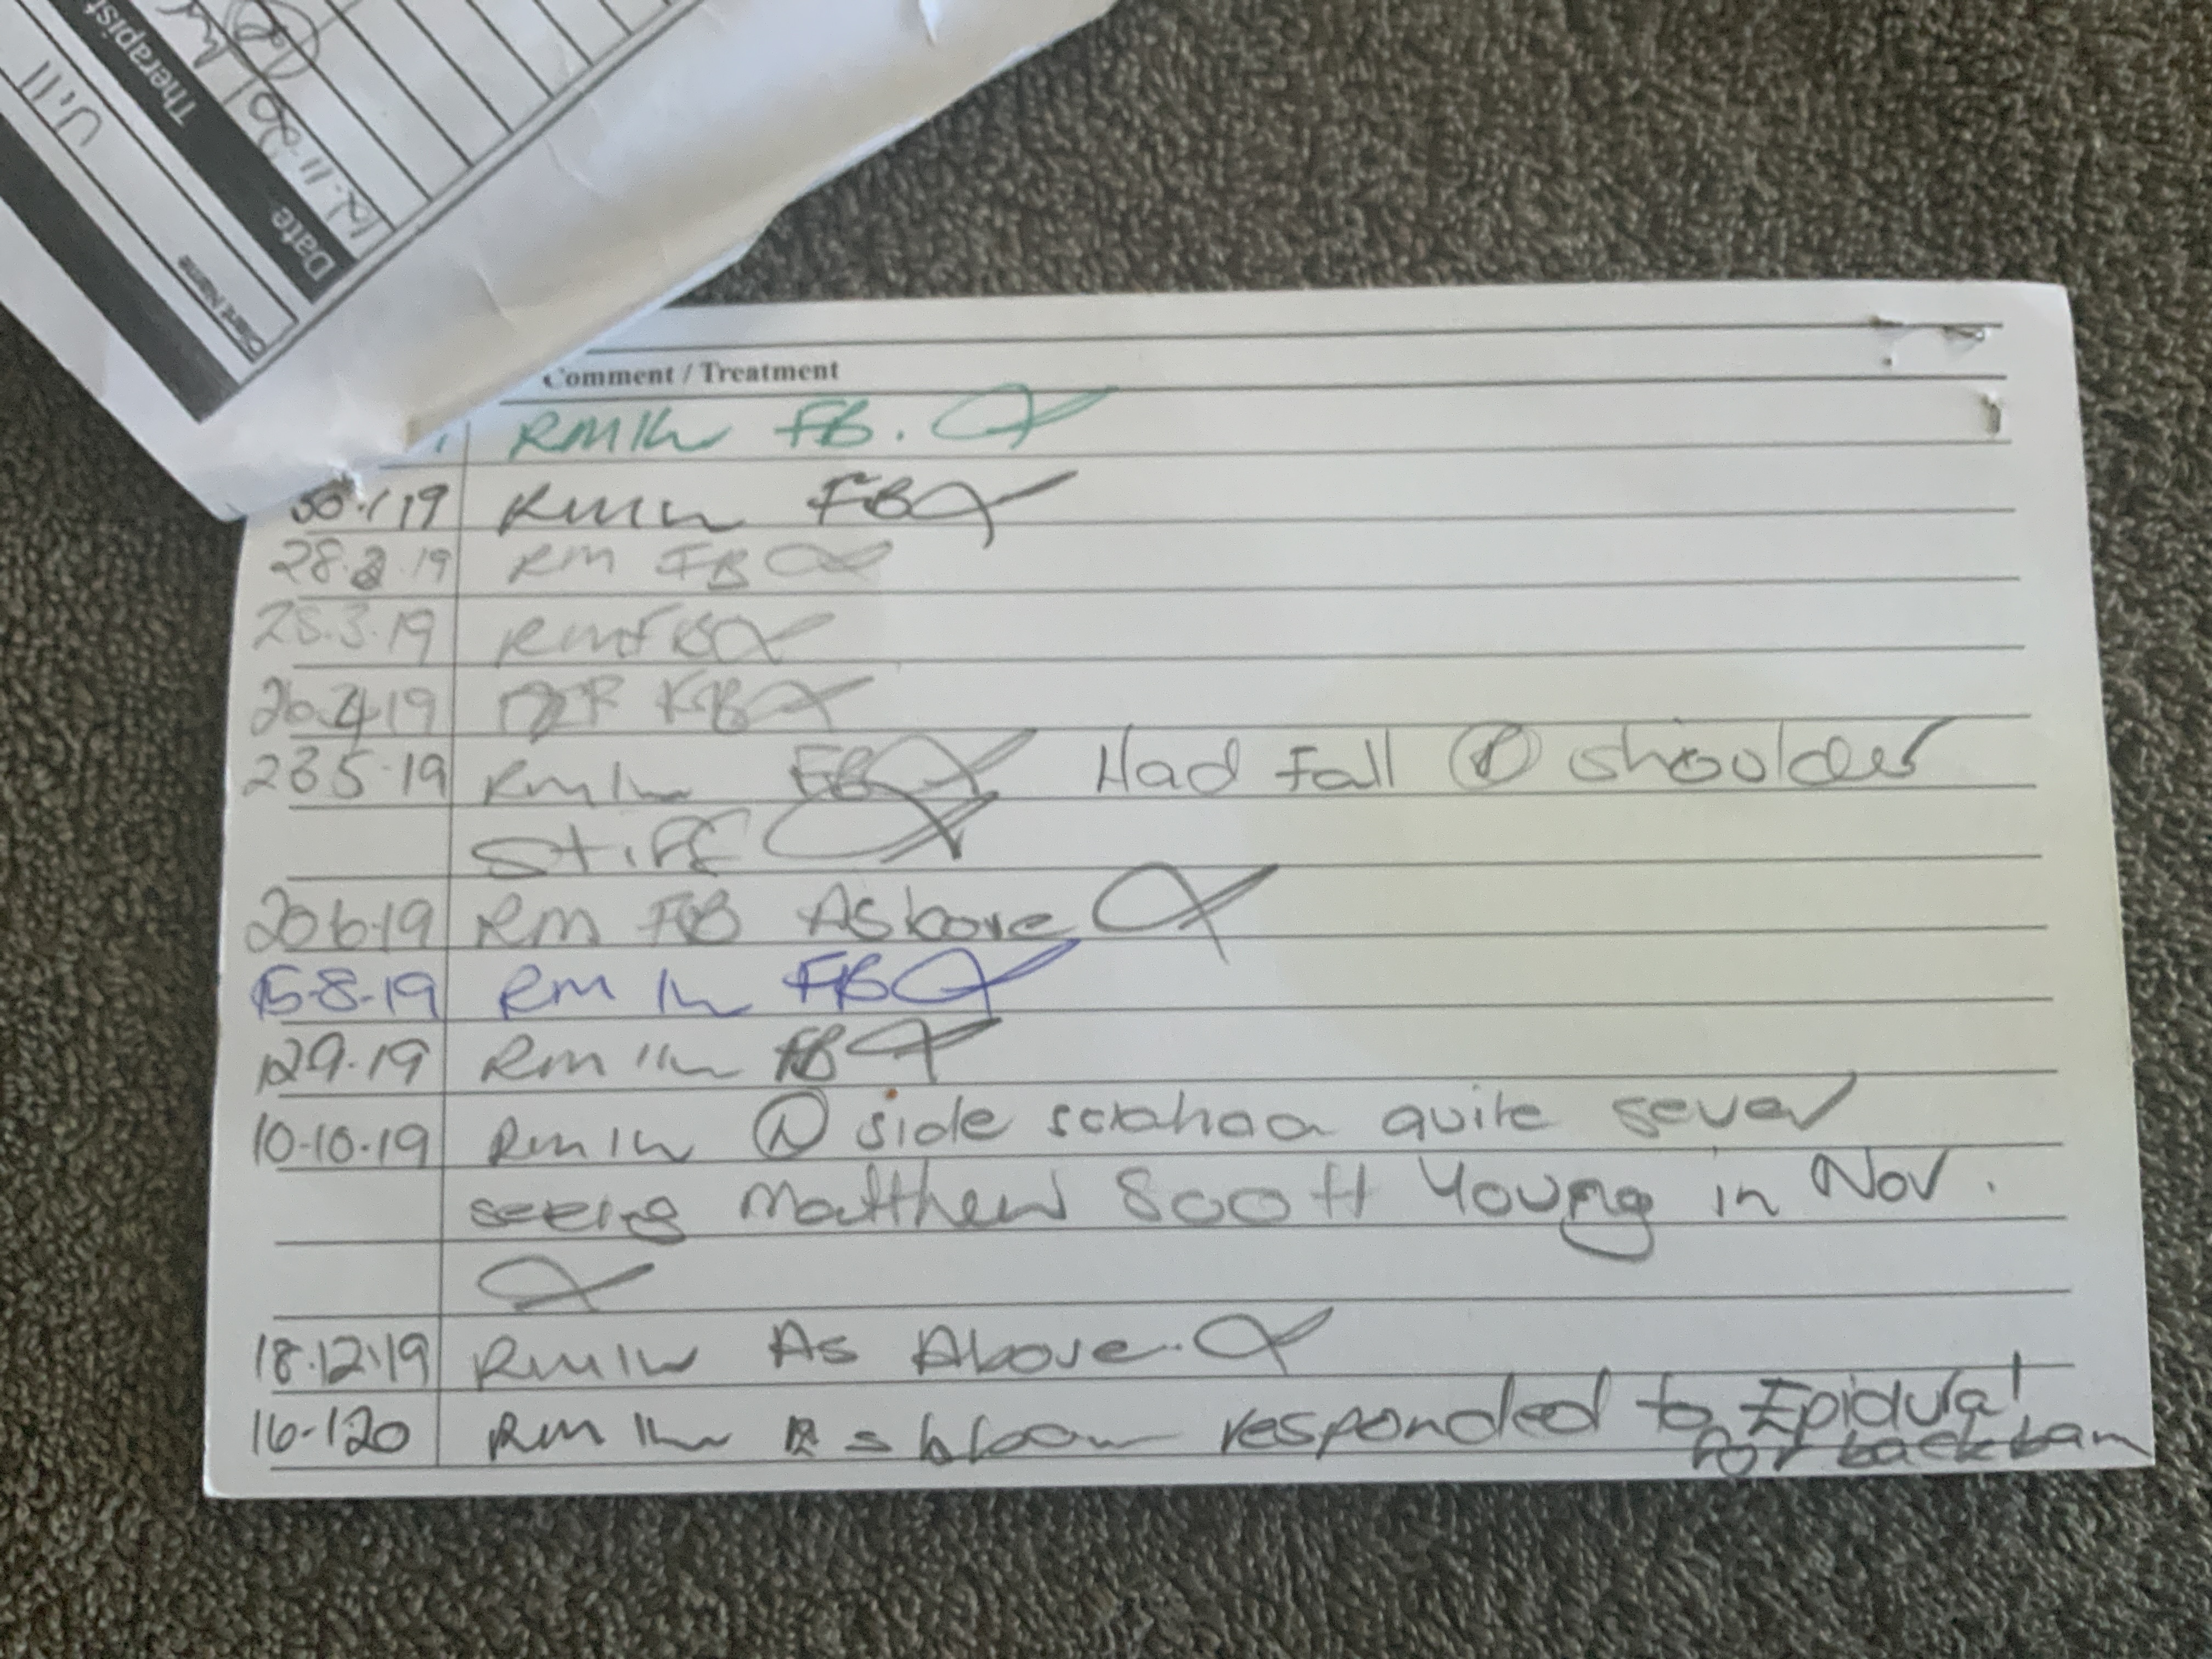 Therapist
Date
12.11.20
Client Name
Comment / Treatment
RM 1hr FB.
30.1.19 RM 1hr FB
28.2.19 RM FB
28.3.19 RM FB
26.4.19
23.5.19 RM 1hr FB Had Fall shoulder
stiff
20.6.19 RM FB As bove
15-8-19 RM 1hr FB
12.9.19 RM 1hr FB
10-10-19 RM 1hr side sciatica quite sever
seeing Matthew Scott Young in Nov.
18.12.19 RM 1hr As Above.
16-1-20 RM 1hr responded to Epidural
for back pain